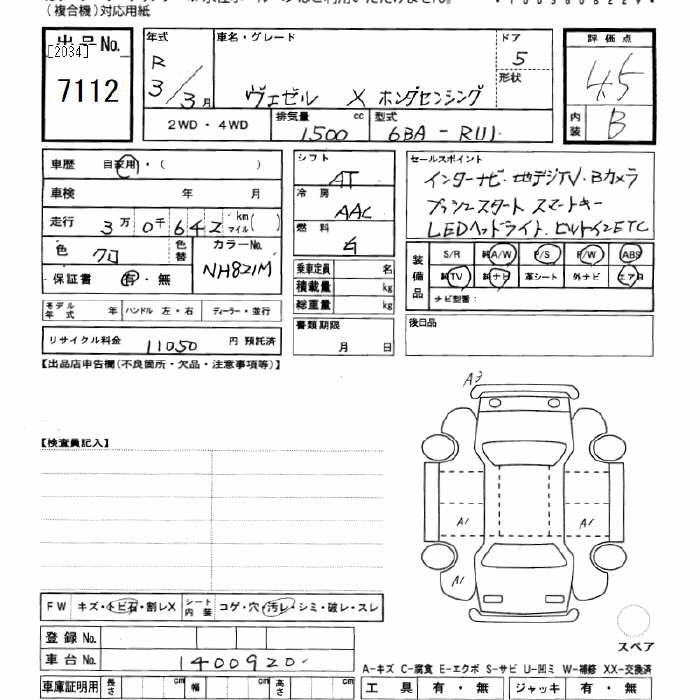 (複合機)対応用紙
出品No.
[2034]
7112
年式
R
3/3月
車名・グレード
ヴェゼル X ホンダセンシング
ドア
5
形状
2WD・4WD
排気量 cc
1500
型式
6BA-RU1
評価点
4.5
内装
B
車歴 自家用・( )
車検 年 月
走行 3万0千642 km マイル( )
色 クロ
色替
カラーNo.
NH821M
保証書 有・無
モデル年式 年 ハンドル 左・右 ディーラー・並行
リサイクル料金 11050 円 預託済
シフト
AT
冷房
AAC
燃料
乗車定員 名
積載量 kg
総重量 kg
書類期限
月 日
セールスポイント
インターナビ・地デジTV・Bカメラ
プッシュスタート スマートキー
LEDヘッドライト ビルトインETC
装備品
S/R 純A/W P/S P/W ABS
純TV 純ナビ 革シート 外ナビ エアB
ナビ型番:
後日品
【出品店申告欄(不良箇所・欠品・注意事項等)】
A3
【検査員記入】
A1
A1
A1
FW キズ・トビ石・割レX
シート内装 コゲ・穴・汚レ・シミ・破レ・スレ
登録No.
車台No. 1400920
スペア
A-キズ C-腐食 E-エクボ S-サビ U-凹ミ W-補修 XX-交換済
車庫証明用 長さ cm 幅 cm 高さ cm
工具 有・無 ジャッキ 有・無